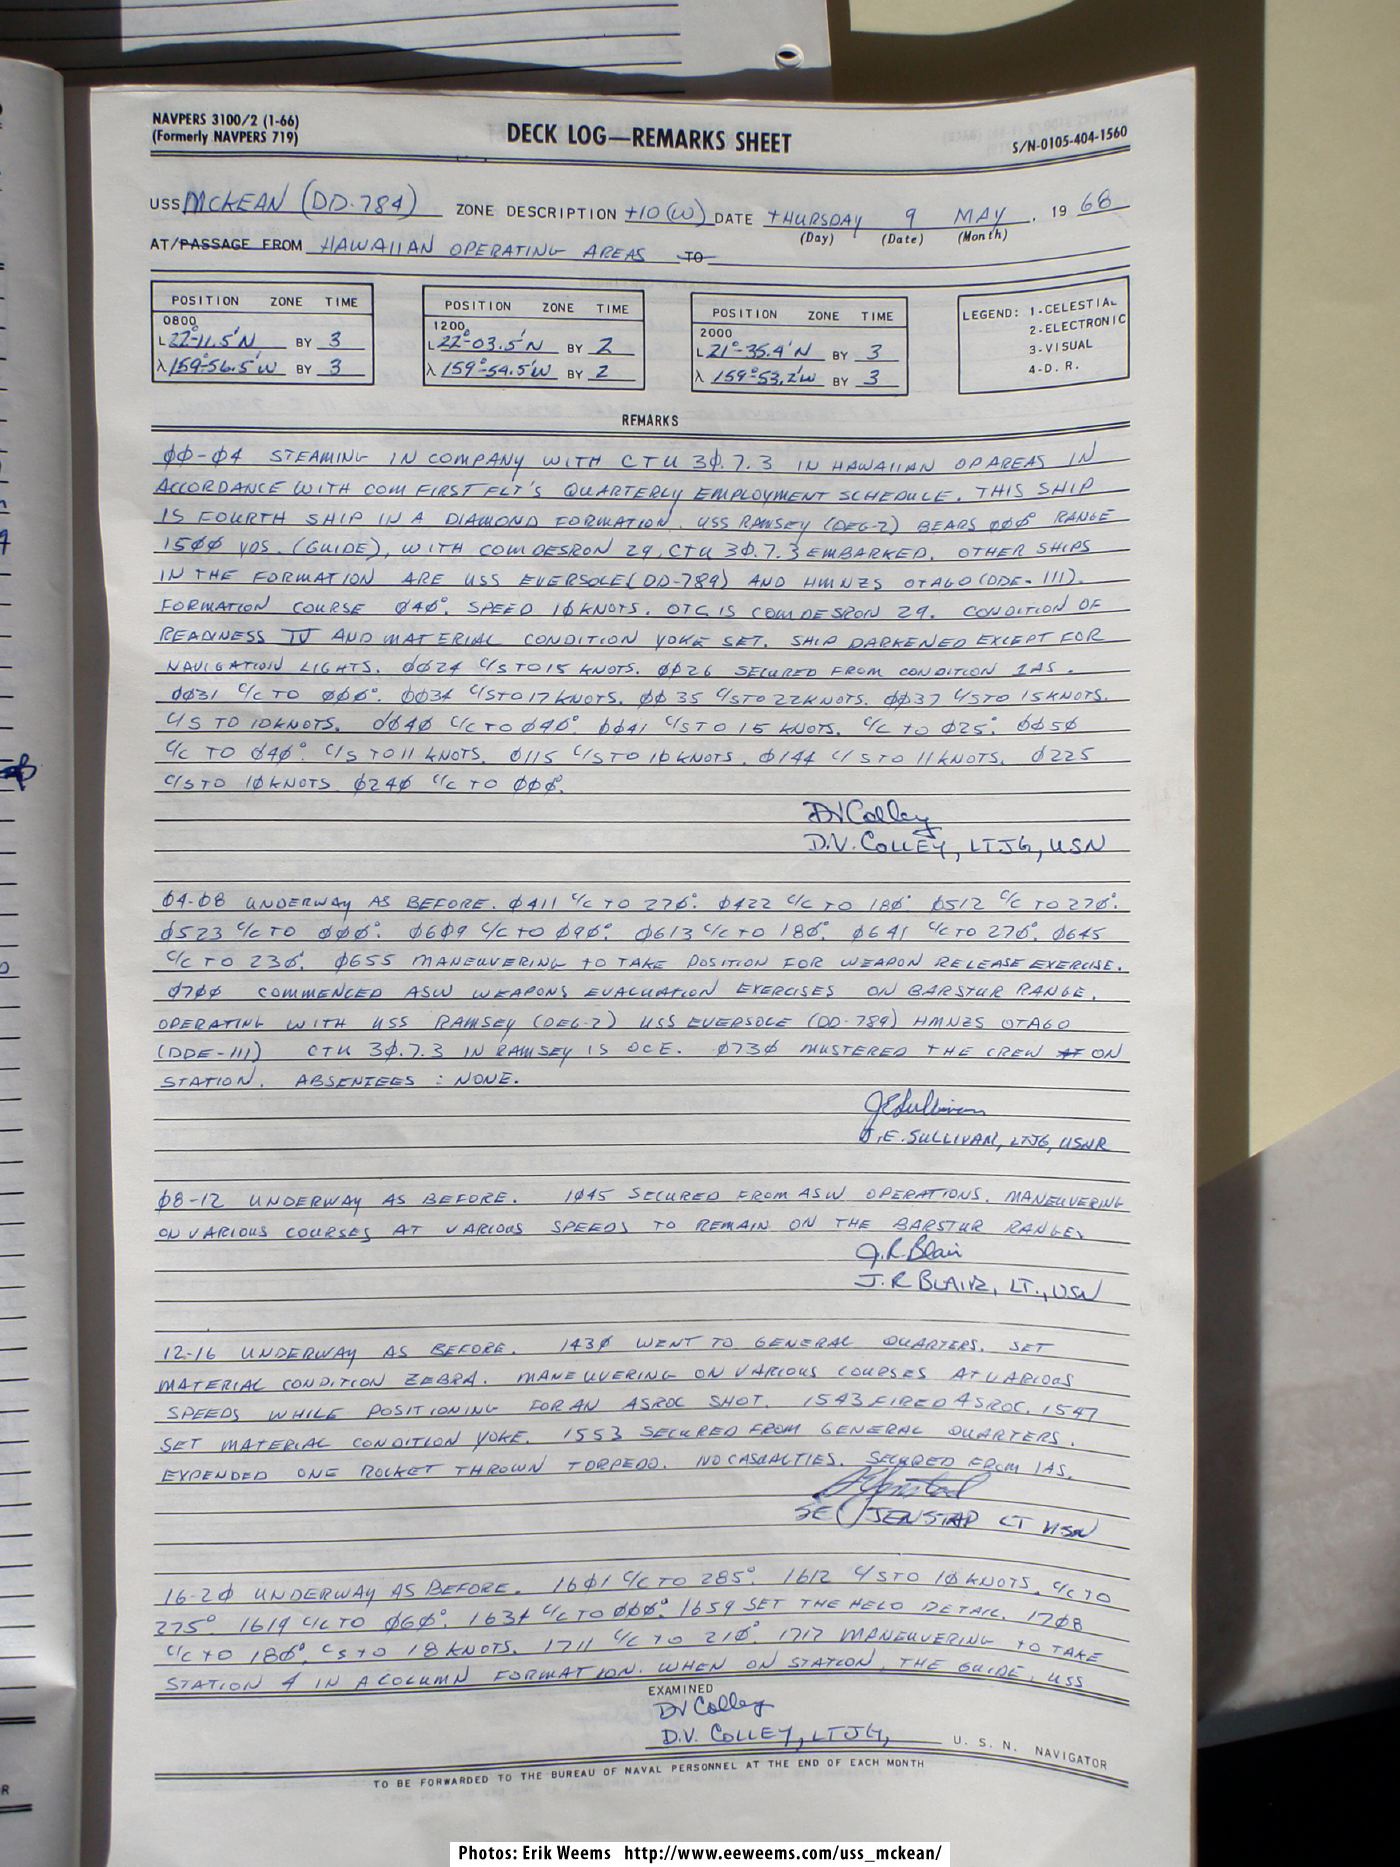 NAVPERS 3100/2 (1-66)
(Formerly NAVPERS 719)
DECK LOG—REMARKS SHEET
S/N-0105-404-1560
USS MCKEAN (DD-784) ZONE DESCRIPTION +10(W) DATE THURSDAY 9 MAY, 19 68
(Day) (Date) (Month)
AT/PASSAGE FROM HAWAIIAN OPERATING AREAS TO
POSITION ZONE TIME
0800
L 22°-11.5'N BY 3
λ 159°-56.5'W BY 3
POSITION ZONE TIME
1200
L 22°-03.5'N BY 2
λ 159°-54.5'W BY 2
POSITION ZONE TIME
2000
L 21°-35.4'N BY 3
λ 159°-53.2'W BY 3
LEGEND: 1-CELESTIAL
2-ELECTRONIC
3-VISUAL
4-D. R.
REMARKS
ØØ-Ø4 STEAMING IN COMPANY WITH CTU 3Ø.7.3 IN HAWAIIAN OPAREAS IN
ACCORDANCE WITH COM FIRST FLT'S QUARTERLY EMPLOYMENT SCHEDULE. THIS SHIP
IS FOURTH SHIP IN A DIAMOND FORMATION. USS RAMSEY (DEG-2) BEARS ØØØ° RANGE
15ØØ YDS. (GUIDE), WITH COMDESRON 29, CTU 3Ø.7.3 EMBARKED. OTHER SHIPS
IN THE FORMATION ARE USS EVERSOLE (DD-789) AND HMNZS OTAGO (DDE-111).
FORMATION COURSE Ø4Ø°. SPEED 1Ø KNOTS. OTC IS COMDESRON 29. CONDITION OF
READINESS IV AND MATERIAL CONDITION YOKE SET. SHIP DARKENED EXCEPT FOR
NAVIGATION LIGHTS. ØØ24 C/S TO 15 KNOTS. ØØ26 SECURED FROM CONDITION 1AS.
ØØ31 C/C TO ØØØ°. ØØ34 C/S TO 17 KNOTS. ØØ35 C/S TO 22 KNOTS. ØØ37 C/S TO 15 KNOTS.
C/S TO 10 KNOTS. ØØ4Ø C/C TO Ø4Ø°. ØØ41 C/S TO 15 KNOTS. C/C TO Ø25°. ØØ5Ø
C/C TO Ø4Ø°. C/S TO 11 KNOTS. Ø115 C/S TO 1Ø KNOTS. Ø144 C/S TO 11 KNOTS. Ø225
C/S TO 1Ø KNOTS. Ø24Ø C/C TO ØØØ°.
DV Colley
D.V. COLLEY, LTJG, USN
Ø4-Ø8 UNDERWAY AS BEFORE. Ø411 C/C TO 27Ø°. Ø422 C/C TO 18Ø°. Ø512 C/C TO 27Ø°.
Ø523 C/C TO ØØØ°. Ø6Ø9 C/C TO Ø9Ø°. Ø613 C/C TO 18Ø°. Ø641 C/C TO 27Ø°. Ø645
C/C TO 23Ø°. Ø655 MANEUVERING TO TAKE POSITION FOR WEAPON RELEASE EXERCISE.
Ø7ØØ COMMENCED ASW WEAPONS EVALUATION EXERCISES ON BARSTUR RANGE,
OPERATING WITH USS RAMSEY (DEG-2) USS EVERSOLE (DD-789) HMNZS OTAGO
(DDE-111) CTU 3Ø.7.3 IN RAMSEY IS OCE. Ø73Ø MUSTERED THE CREW AT ON
STATION. ABSENTEES : NONE.
JE Sullivan
J.E. SULLIVAN, LTJG, USNR
Ø8-12 UNDERWAY AS BEFORE. 1Ø45 SECURED FROM ASW OPERATIONS. MANEUVERING
ON VARIOUS COURSES AT VARIOUS SPEEDS TO REMAIN ON THE BARSTUR RANGE.
J.R. Blair
J.R BLAIR, LT., USN
12-16 UNDERWAY AS BEFORE. 143Ø WENT TO GENERAL QUARTERS. SET
MATERIAL CONDITION ZEBRA. MANEUVERING ON VARIOUS COURSES AT VARIOUS
SPEEDS WHILE POSITIONING FOR AN ASROC SHOT. 1543 FIRED ASROC. 1547
SET MATERIAL CONDITION YOKE. 1553 SECURED FROM GENERAL QUARTERS.
EXPENDED ONE ROCKET THROWN TORPEDO. NO CASUALTIES. SECURED FROM 1AS.
SE JENSTAD LT USN
16-2Ø UNDERWAY AS BEFORE. 16Ø1 C/C TO 285°. 1612 C/S TO 1Ø KNOTS. C/C TO
275°. 1619 C/C TO Ø6Ø°. 1634 C/C TO ØØØ°. 1659 SET THE HELO DETAIL. 17Ø8
C/C TO 18Ø°. C/S TO 18 KNOTS. 1711 C/C TO 21Ø°. 1717 MANEUVERING TO TAKE
STATION 4 IN A COLUMN FORMATION. WHEN ON STATION, THE GUIDE, USS
EXAMINED
DV Colley
D.V. COLLEY, LTJG, U. S. N. NAVIGATOR
TO BE FORWARDED TO THE BUREAU OF NAVAL PERSONNEL AT THE END OF EACH MONTH
Photos: Erik Weems http://www.eeweems.com/uss_mckean/